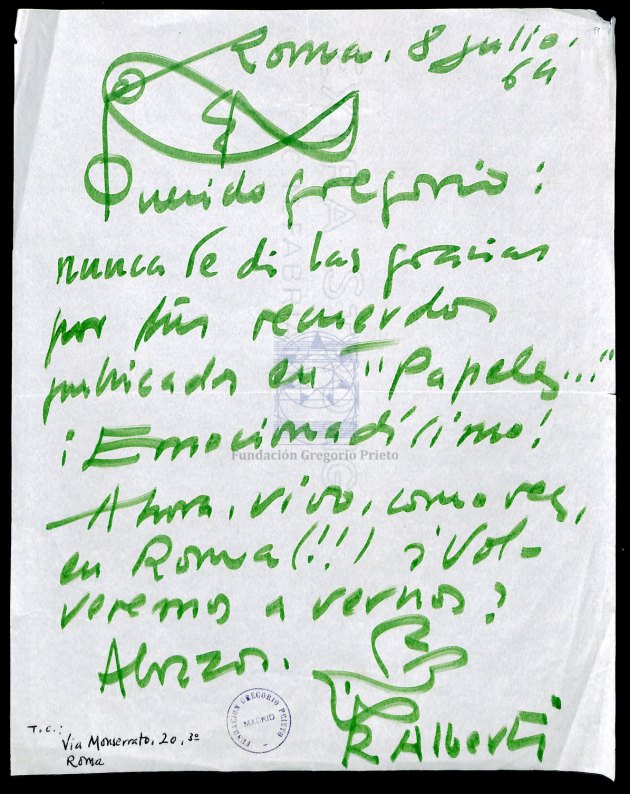 Roma, 8 julio,
64
Querido Gregorio:
nunca te di las gracias
por tus recuerdos
publicados en "Papeles..."
¡Emocionadísimo!
Ahora, vivo, como ves,
en Roma (!!) ¿Vol-
veremos a vernos?
Abrazos.
R Alberti
T.C.:
Via Monserrato, 20, 3º
Roma
FUNDACION GREGORIO PRIETO
MADRID
Fundación Gregorio Prieto